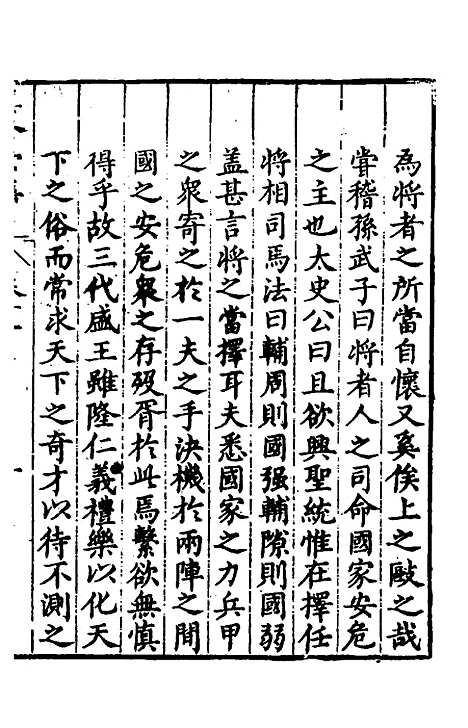 為將者之所當自懷又奚俟上之敺之哉
甞稽孫武子曰將者人之司命國家安危
之主也太史公曰且欲興聖統惟在擇任
將相司馬法曰輔周則國强輔隙則國弱
盖甚言將之當擇耳夫悉國家之力兵甲
之衆寄之於一夫之手決機於兩陣之間
國之安危衆之存歿胥於此焉繫欲無慎
得乎故三代盛王雖隆仁義禮樂以化天
下之俗而常求天下之奇才以待不測之